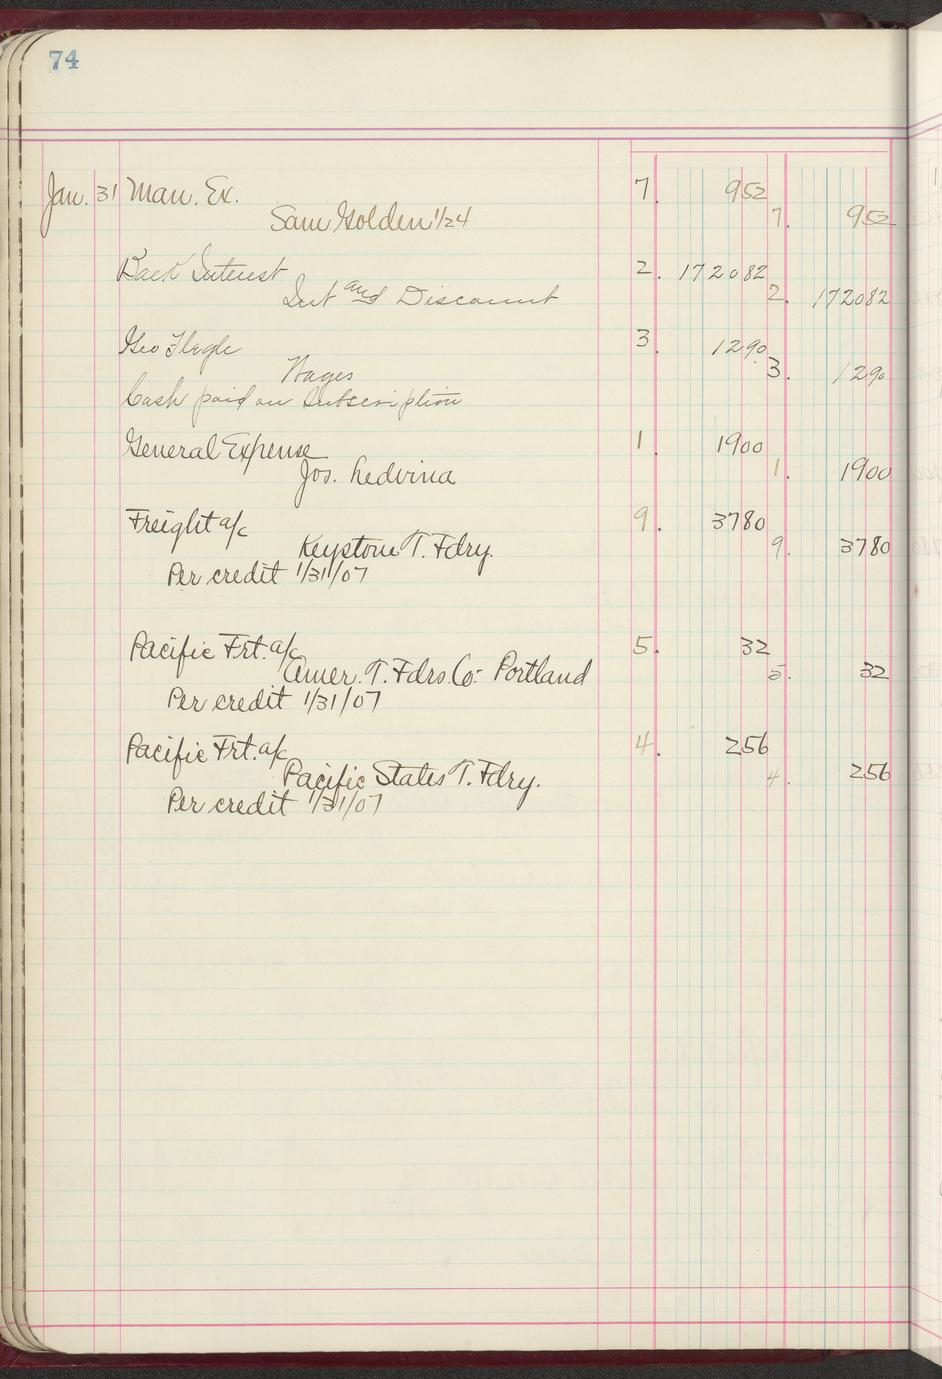 74
Jan. 31 Man. Ex. 7. 952
Sam Golden 1/24 7. 952
Back Interest 2. 172082
Int and Discount 2. 172082
Geo Flegle 3. 1290
Wages 3. 1290
Cash paid on Subscription
General Expense 1. 1900
Jos. Ledvina 1. 1900
Freight a/c 9. 3780
Keystone T. Fdry. 9. 3780
Per credit 1/31/07
Pacific Frt. a/c 5. 32
Amer. T. Fdrs. Co- Portland 5. 32
Per credit 1/31/07
Pacific Frt. a/c 4. 256
Pacific States T. Fdry. 4. 256
Per credit 1/31/07